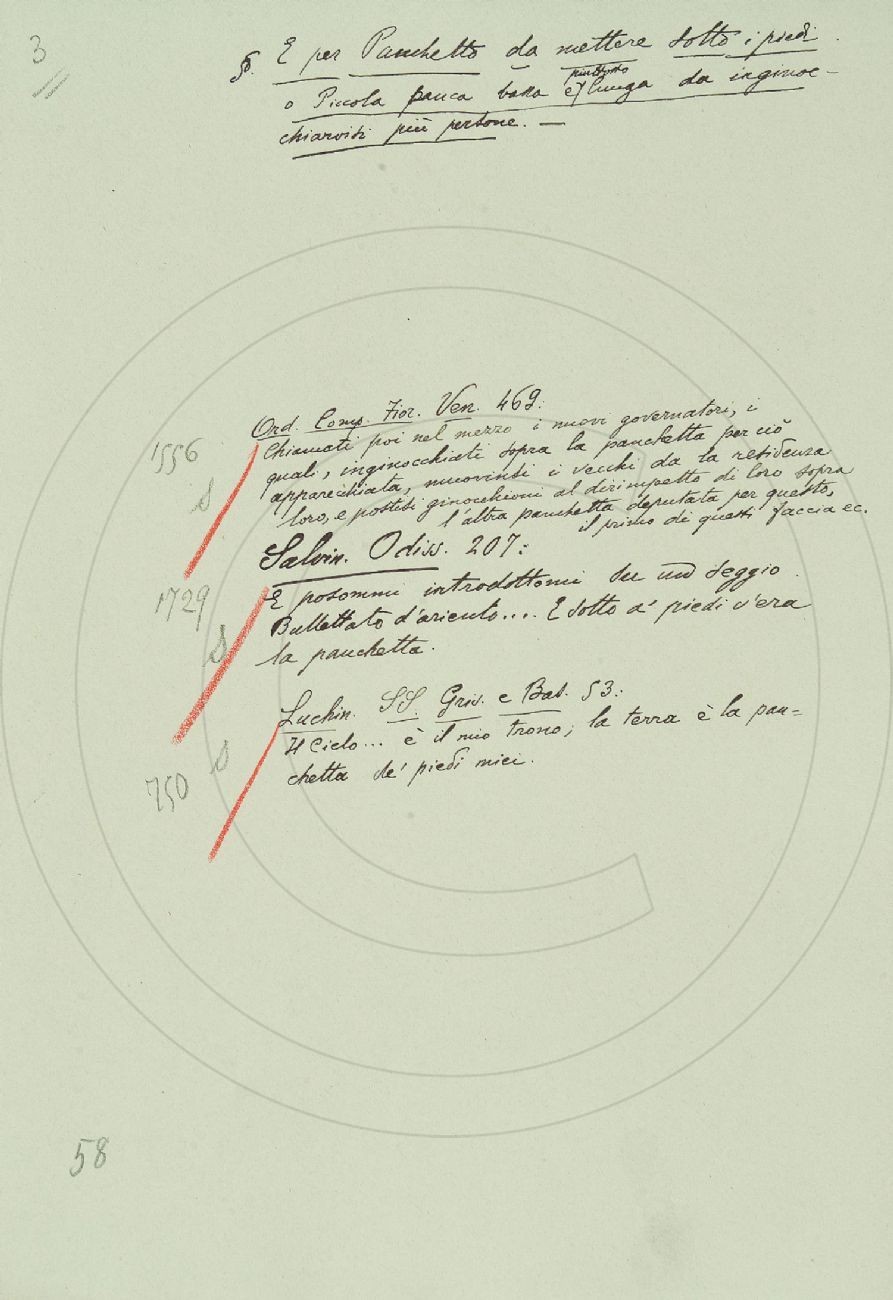 3
§. E per Panchetto da mettere sotto i piedi
o Piccola panca bassa e piuttosto lunga da inginoc-
chiarvisi più persone. —
Ord. Comp. Fior. Ven. 469:
1556
Chiamati poi nel mezzo i nuovi governatori, i
quali, inginocchiati sopra la panchetta per ciò
S
apparecchiata, muovinsi i vecchi da la residenza
loro, e postisi ginocchioni al dirimpetto di loro sopra
l'altra panchetta deputata per questo,
il primo di questi faccia ec.
Salvin. Odiss. 207:
1729
E posommi introdottomi su un seggio
Bullettato d'ariento.... E sotto a' piedi v'era
S
la panchetta.
Luchin. SS. Gris. e Bas. 53:
S
Il Cielo... è il mio trono; la terra è la pan=
750
chetta de' piedi miei.
58